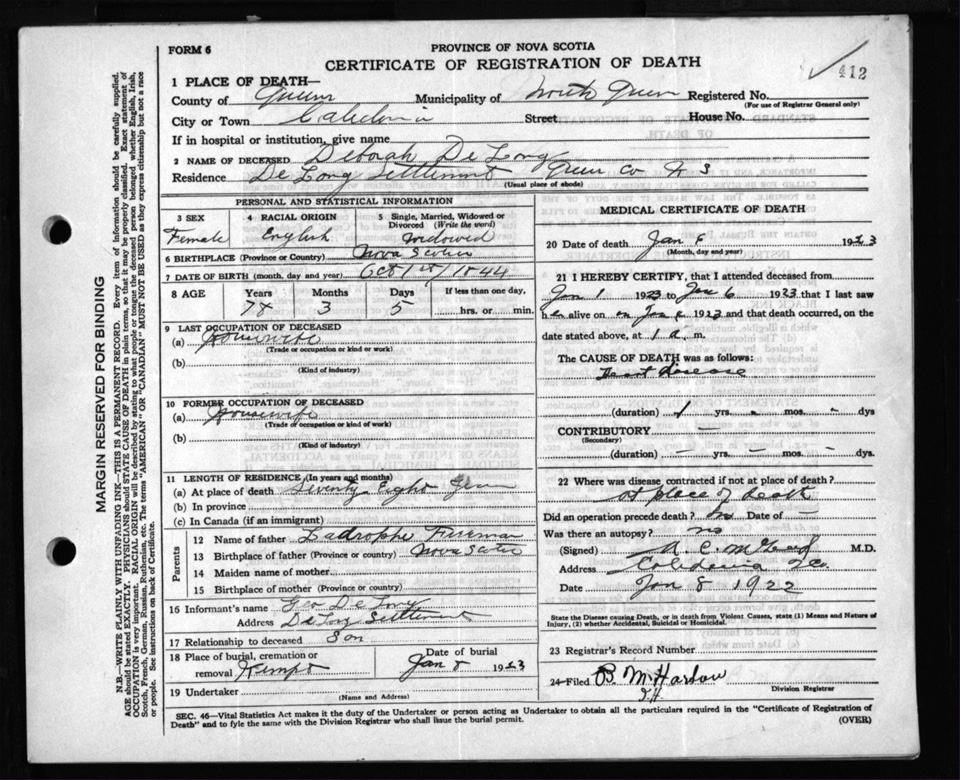 FORM 6
PROVINCE OF NOVA SCOTIA
CERTIFICATE OF REGISTRATION OF DEATH
412
1 PLACE OF DEATH—
County of Queens Municipality of North Queen Registered No.
(For use of Registrar General only)
City or Town Caledonia Street House No.
If in hospital or institution, give name
2 NAME OF DECEASED Deborah DeLong
Residence DeLong Settlement Queen Co N S
(Usual place of abode)
PERSONAL AND STATISTICAL INFORMATION
3 SEX 4 RACIAL ORIGIN 5 Single, Married, Widowed or Divorced (Write the word)
Female English Widowed
6 BIRTHPLACE (Province or Country) Nova Scotia
7 DATE OF BIRTH (month, day and year) Oct 1st/1844
8 AGE Years Months Days If less than one day,
78 3 5 hrs. or min.
9 LAST OCCUPATION OF DECEASED
(a) Housewife
(Trade or occupation or kind or work)
(b)
(Kind of industry)
10 FORMER OCCUPATION OF DECEASED
(a) Housewife
(Trade or occupation or kind or work)
(b)
(Kind of industry)
11 LENGTH OF RESIDENCE (In years and months)
(a) At place of death Seventy Eight Years
(b) In province
(c) In Canada (if an immigrant)
Parents
12 Name of father Freeman
13 Birthplace of father (Province or country) Nova Scotia
14 Maiden name of mother
15 Birthplace of mother (Province or country)
16 Informant's name Geo DeLong
Address DeLong Settlement
17 Relationship to deceased Son
18 Place of burial, cremation or removal Kempt Date of burial Jan 8 1923
19 Undertaker
(Name and Address)
MEDICAL CERTIFICATE OF DEATH
20 Date of death Jan 6 1923
(Month, day and year)
21 I HEREBY CERTIFY, that I attended deceased from
Jan 1 1923 to Jan 6 1923 that I last saw
her alive on Jan 6 1923 and that death occurred, on the
date stated above, at 1 a. m.
The CAUSE OF DEATH was as follows:
Heart disease
(duration) 1 yrs. – mos. – dys
CONTRIBUTORY —
(Secondary)
(duration) – yrs. – mos. – dys
22 Where was disease contracted if not at place of death?
at place of death
Did an operation precede death? no Date of –
Was there an autopsy? no
(Signed) M.D.
Address Caledonia
Date Jan 8 1922
State the Disease causing Death, or in death from Violent Causes, state (1) Means and Nature of Injury, (2) whether Accidental, Suicidal or Homicidal.
23 Registrar's Record Number
24 Filed B. M Harlow
Division Registrar
SEC. 46—Vital Statistics Act makes it the duty of the Undertaker or person acting as Undertaker to obtain all the particulars required in the "Certificate of Registration of Death" and to fyle the same with the Division Registrar who shall issue the burial permit.
(OVER)
MARGIN RESERVED FOR BINDING
N.B.—WRITE PLAINLY WITH UNFADING INK—THIS IS A PERMANENT RECORD. Every item of information should be carefully supplied.
AGE should be stated EXACTLY. PHYSICIANS should STATE CAUSE OF DEATH in plain terms, so that it may be properly classified. Exact statement of
OCCUPATION is very important. RACIAL ORIGIN will be described by stating to what people or tongue the deceased person belonged whether English, Irish,
Scotch, French, German, Russian, Ruthenian, etc. The terms "AMERICAN" OR "CANADIAN" MUST NOT BE USED as they express citizenship but not a race
or people. See instructions on back of Certificate.